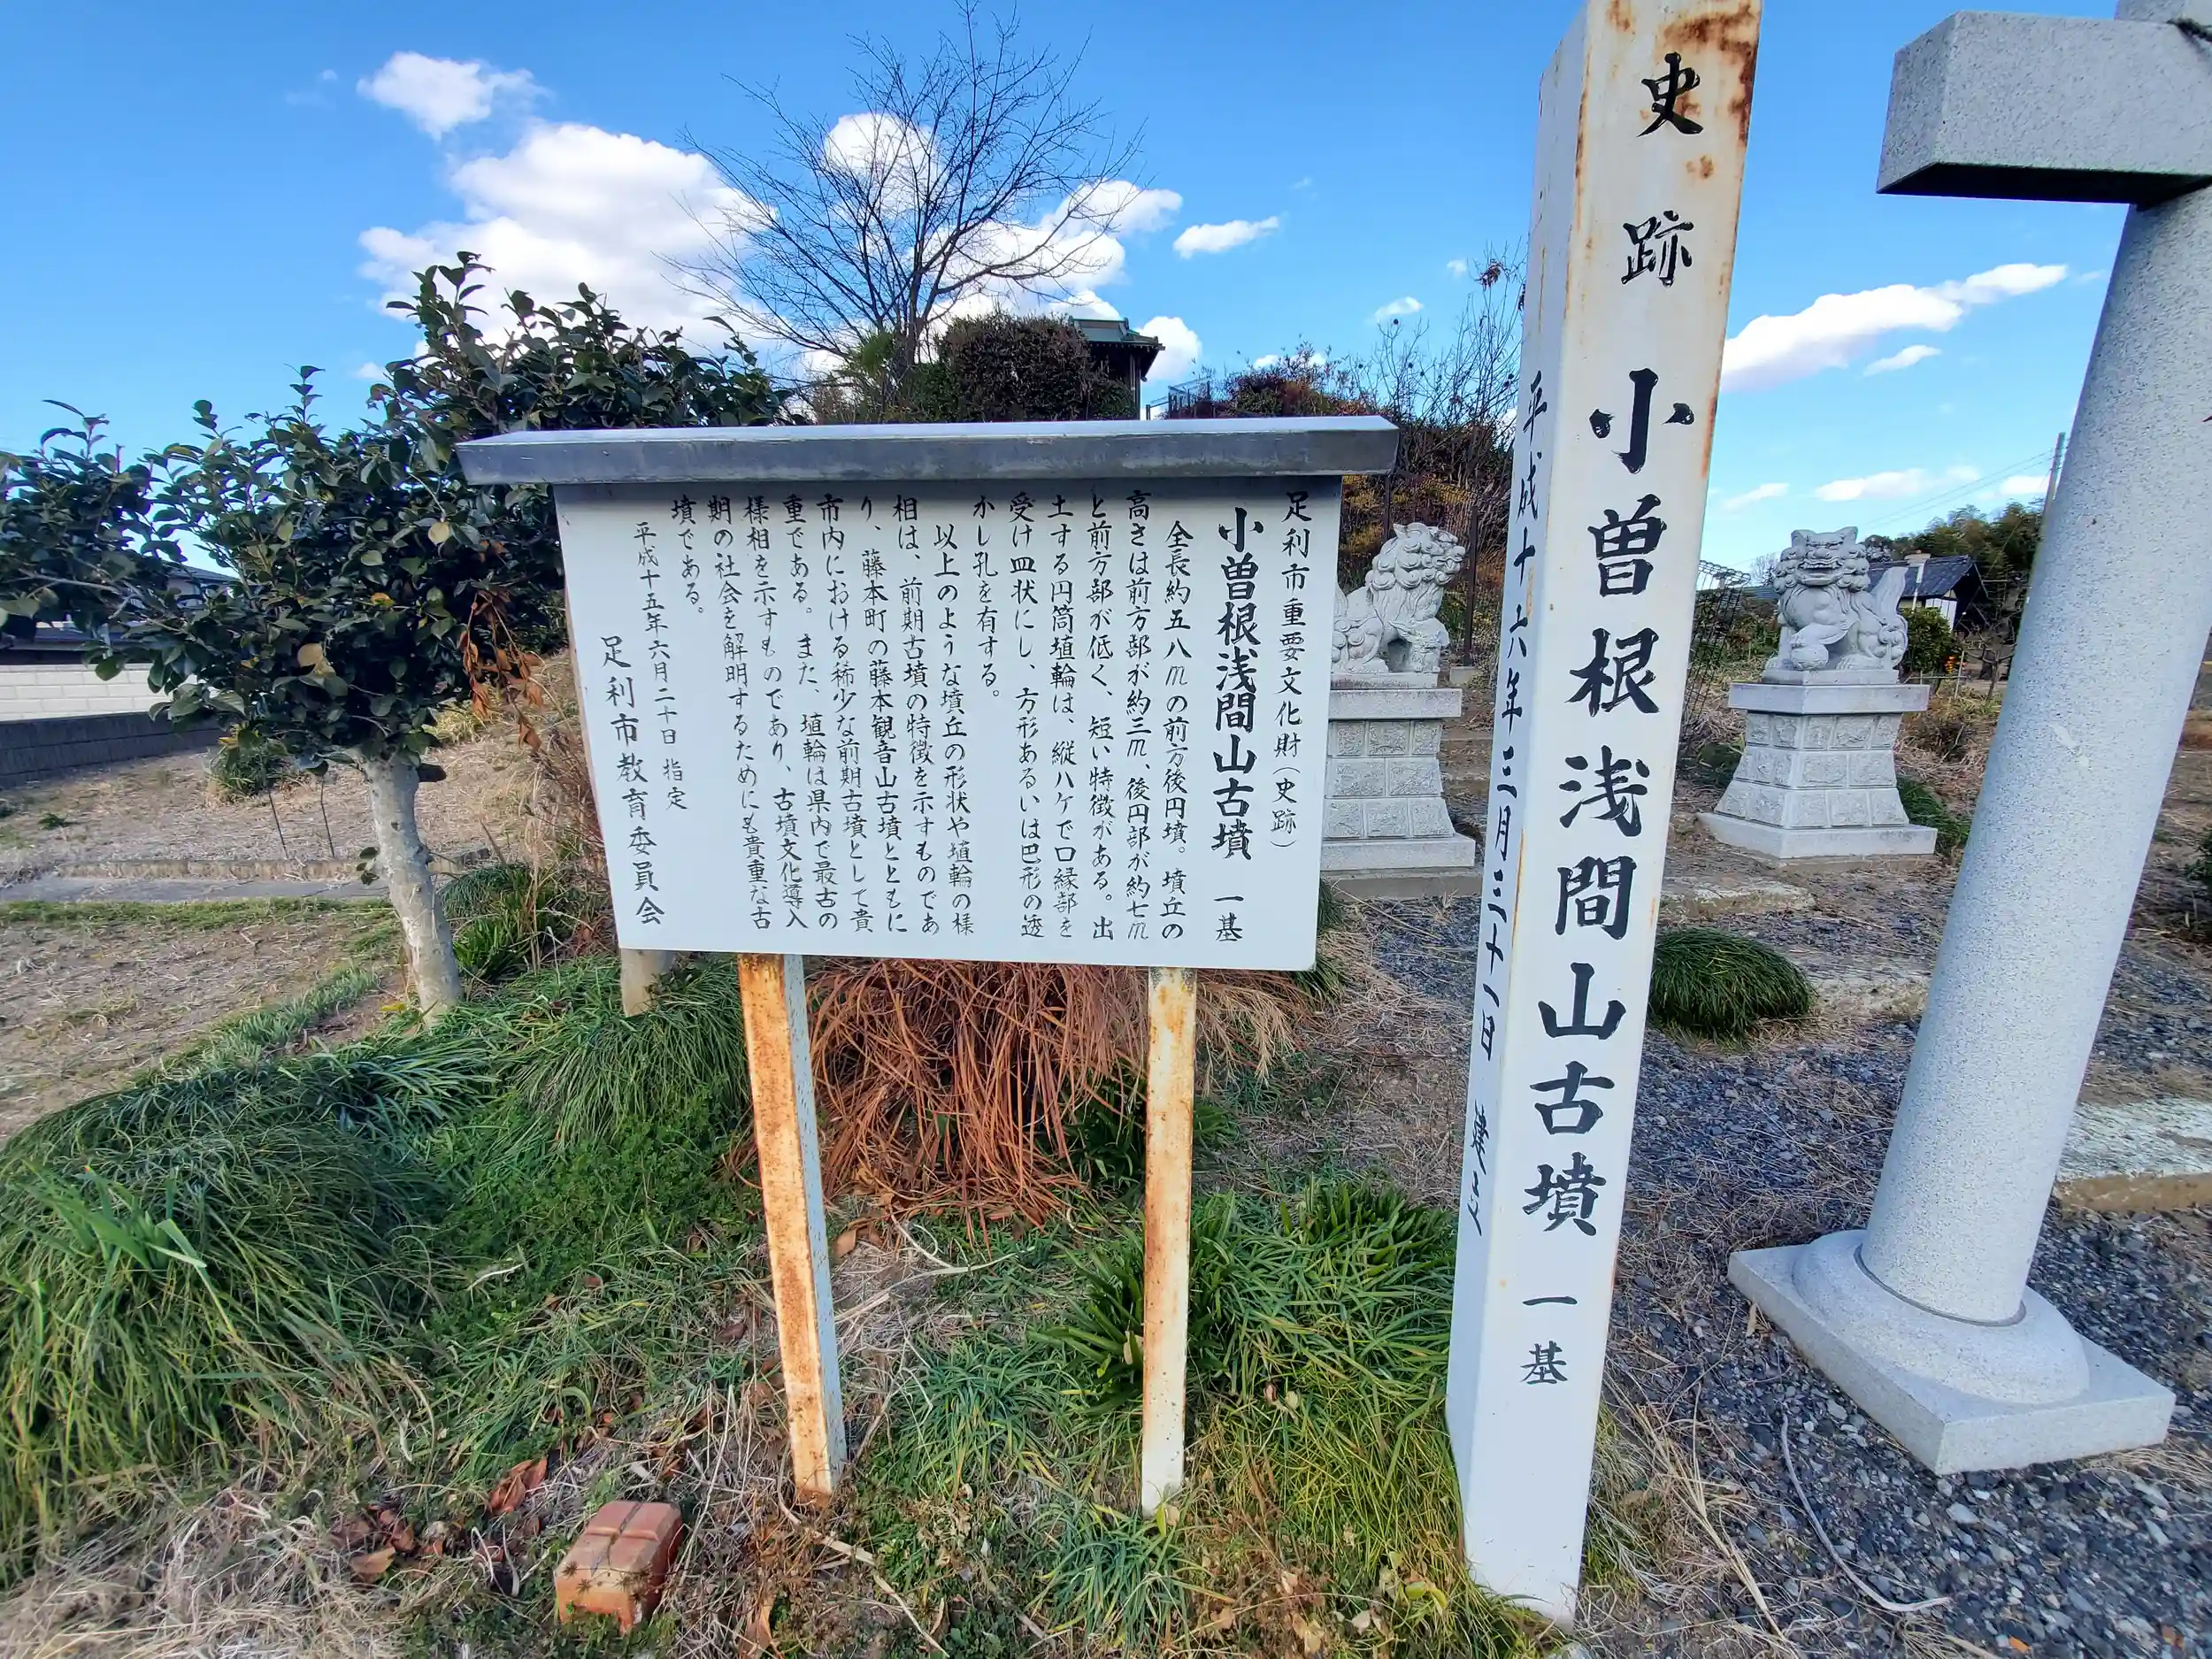 史跡 小曽根浅間山古墳 一基
平成十六年三月三十一日 建之
足利市重要文化財(史跡)
小曽根浅間山古墳 一基
全長約五八mの前方後円墳。墳丘の
高さは前方部が約三m、後円部が約七m
と前方部が低く、短い特徴がある。出
土する円筒埴輪は、縦ハケで口縁部を
受け皿状にし、方形あるいは巴形の透
かし孔を有する。
以上のような墳丘の形状や埴輪の様
相は、前期古墳の特徴を示すものであ
り、藤本町の藤本観音山古墳とともに
市内における稀少な前期古墳として貴
重である。また、埴輪は県内で最古の
様相を示すものであり、古墳文化導入
期の社会を解明するためにも貴重な古
墳である。
平成十五年六月二十日 指定
足利市教育委員会